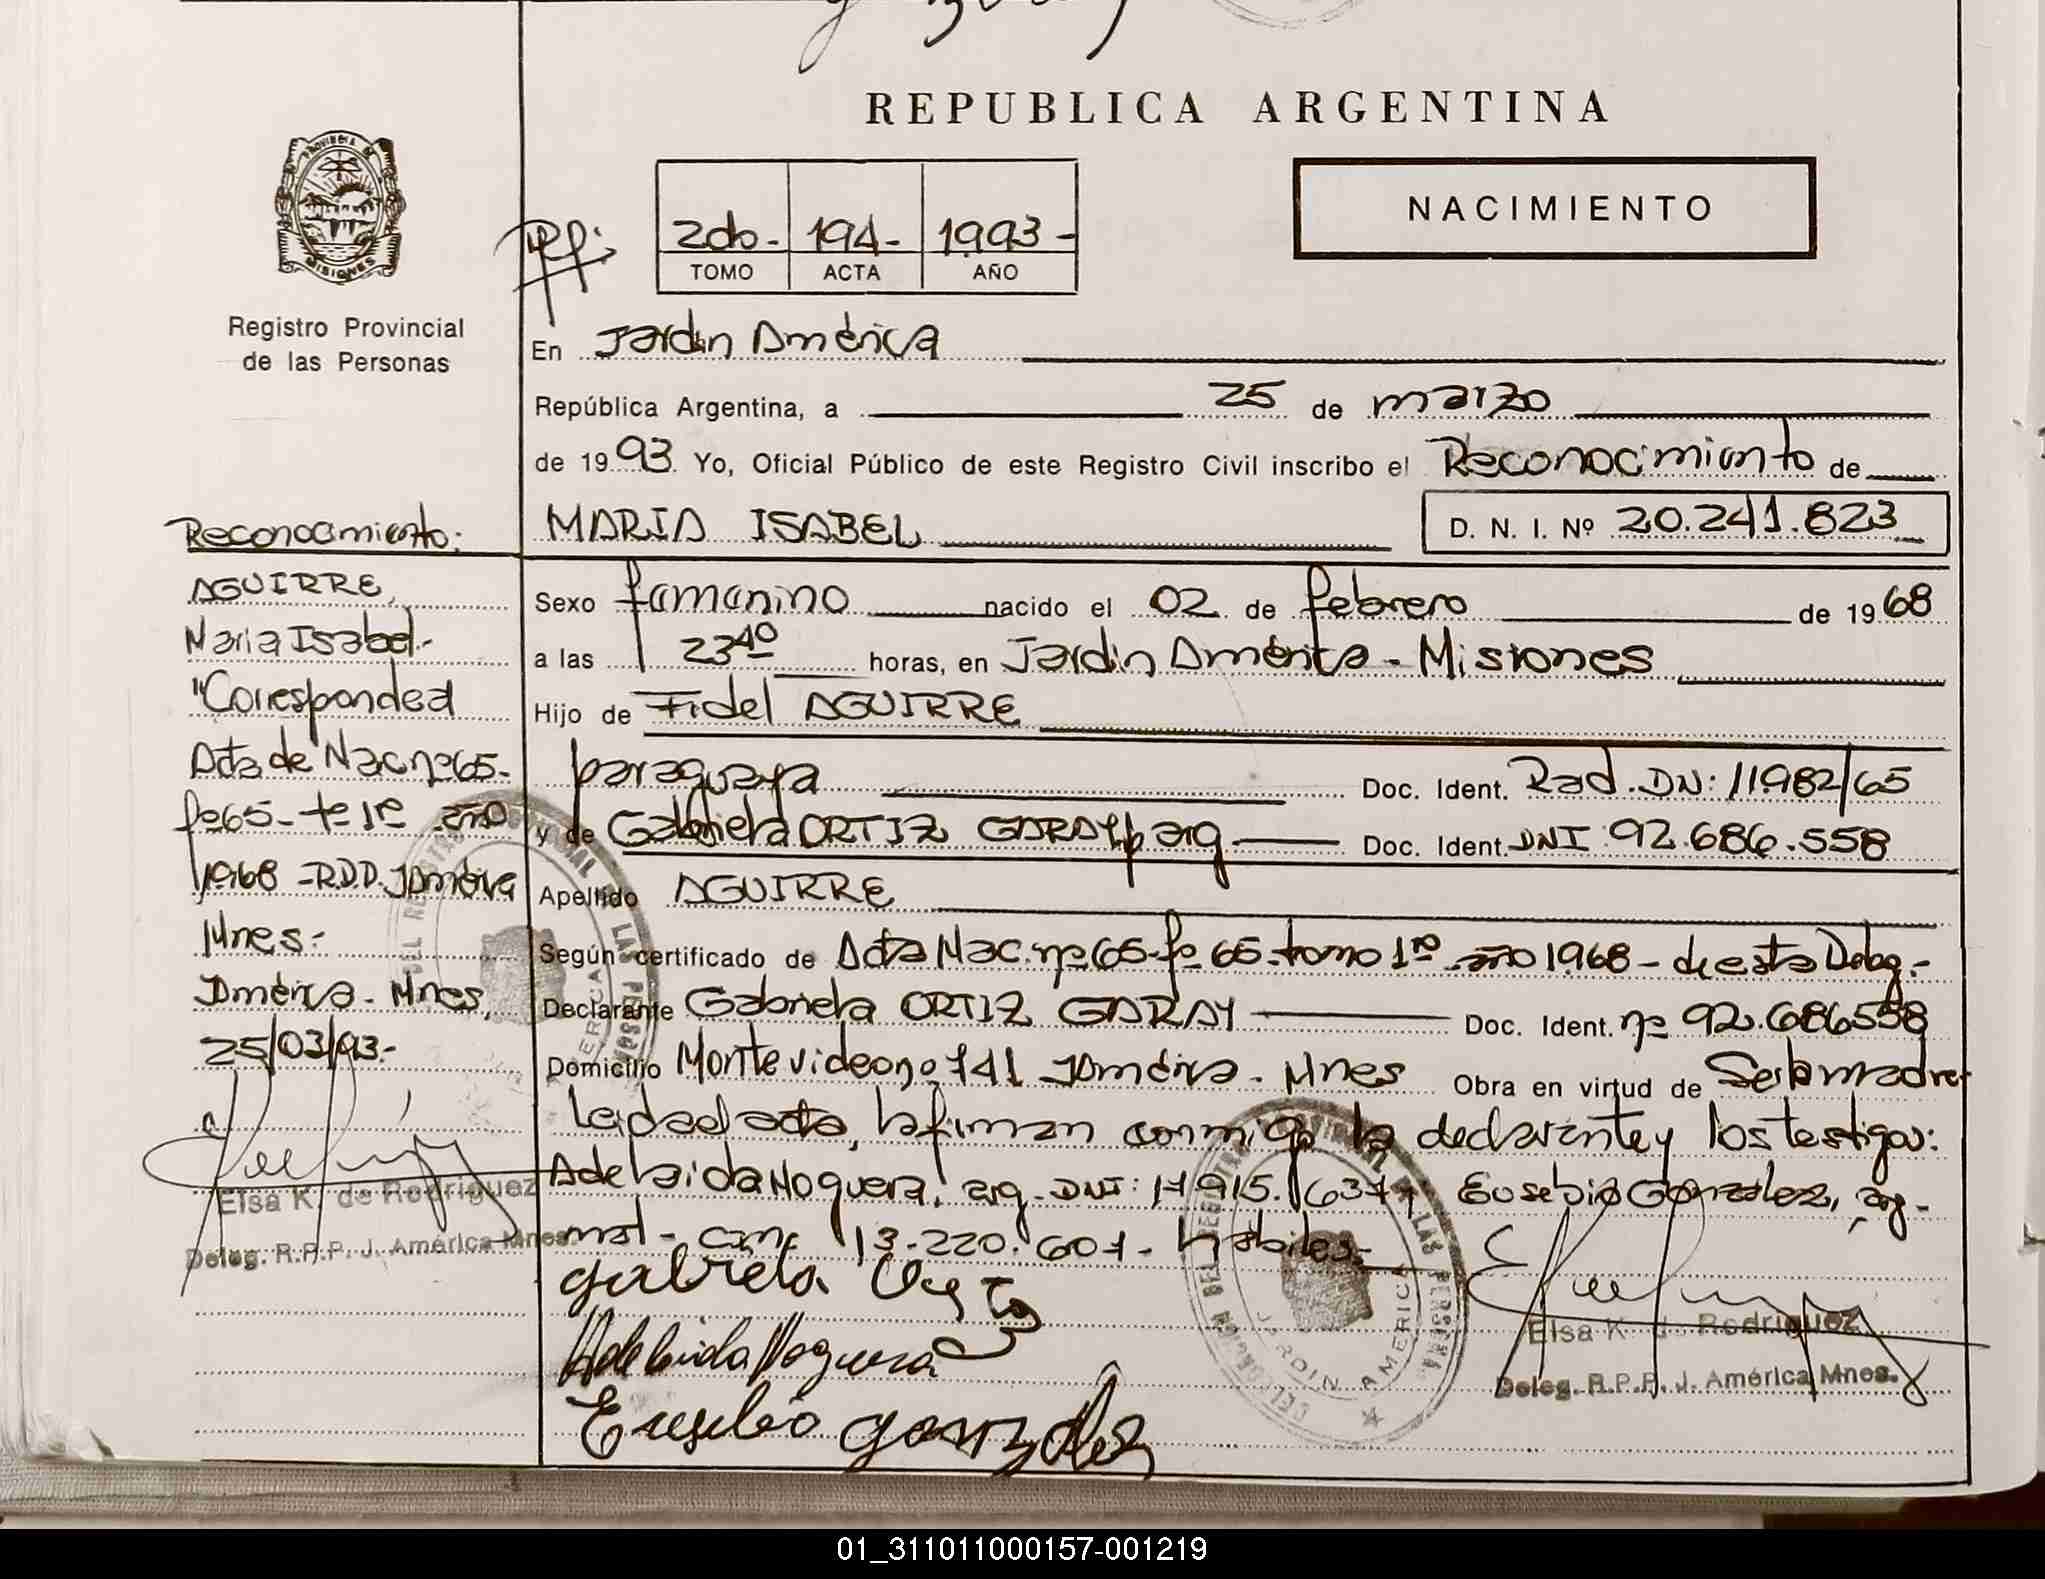 REPUBLICA ARGENTINA
NACIMIENTO
2do- 194- 1993-
TOMO ACTA AÑO
PROVINCIA DE MISIONES
Registro Provincial
de las Personas
En Jardin América
República Argentina, a 25 de marzo
de 1993. Yo, Oficial Público de este Registro Civil inscribo el Reconocimiento de
MARIA ISABEL D. N. I. Nº 20.241.823
Sexo femenino nacido el 02 de febrero de 1968
a las 23 40 horas, en Jardin América - Misiones
Hijo de Fidel AGUIRRE
paraguaya Doc. Ident. Rad. DN: 11982/65
y de Gabriela ORTIZ GARAY, arg Doc. Ident. DNI 92.686.558
Apellido AGUIRRE
Según certificado de Acta Nac. nº 65 fº 65 tomo 1ro año 1968 - de esta Deleg.-
Declarante Gabriela ORTIZ GARAY Doc. Ident. nº 92.686558
Domicilio Montevideo nº 741 J América - Mnes Obra en virtud de Ser la madre
Leida el acta, la firman conmigo la declarante y los testigos:
Adelaida Noguera, arg. DNI: 17.915.637 y Eusebio Gonzalez, arg-
mat- 13.220.607- habiles-
Gabriela
Adelaida Noguera
Eusebio Gonzalez
Elsa K. de Rodriguez
Deleg. R.P.P. J. América Mnes.
Reconocimiento:
AGUIRRE,
Maria Isabel-
"Corresponde a
Acta de Nac nº 65-
fº 65- tº 1rº año
1968 - R.D.D. J América
Mnes-
América- Mnes,
25/03/93-
Elsa K. de Rodriguez
Deleg. R.P.P. J. América Mnes
JARDIN AMERICA
01_311011000157-001219